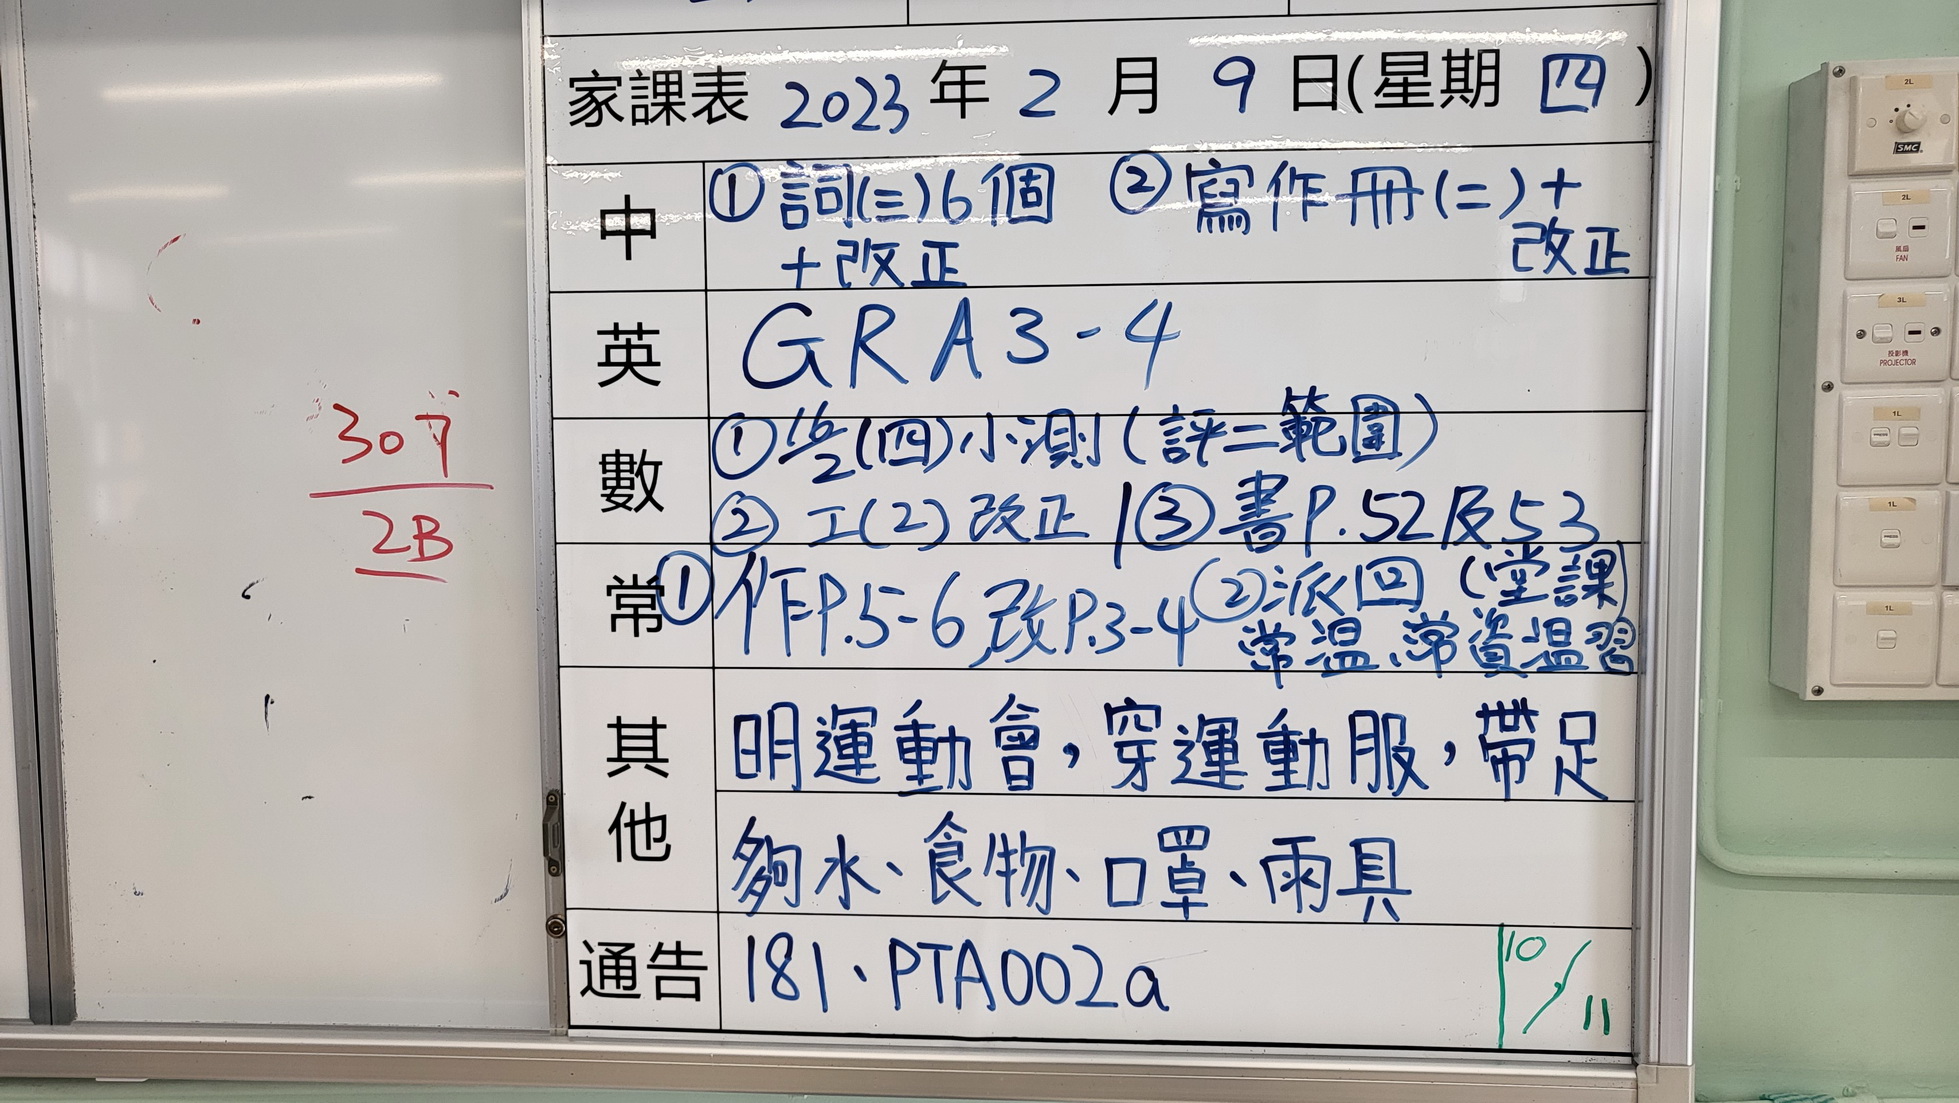 家課表 2023 年 2 月 9 日(星期 四 )
中 ①詞(三)6個 ②寫作冊(二)+
+改正 改正
英 GRA3-4
數 ①16/2(四)小測(評二範圍)
②工(2)改正 ③書P.52及53
常 ①作P.5-6,改P.3-4 ②派回(堂課
常溫、常資溫習
其他 明運動會,穿運動服,帶足
夠水、食物、口罩、雨具
通告 181、PTA002a
10/11
2B
2L
SMC
2L
風扇
FAN
3L
投影機
PROJECTOR
1L
1L
1L